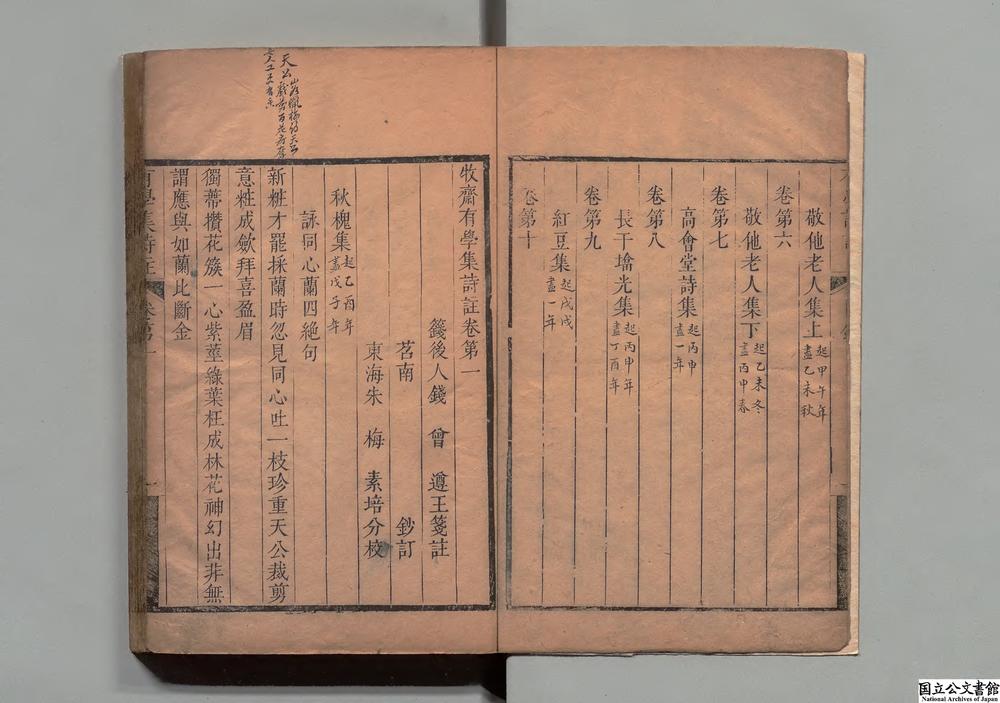 敬他老人集上 起甲午年盡乙未秋
卷第六
敬他老人集下 起乙未冬盡丙申春
卷第七
高會堂詩集 起丙申盡一年
卷第八
長干塔光集 起丙申年盡丁酉年
卷第九
紅豆集 起戊戌盡一年
卷第十
牧齋有學集詩註卷第一
箋後人錢 曾 遵王箋註
苕南 鈔訂
東海朱 梅 素培分校
秋槐集 起乙酉年盡戊子年
詠同心蘭四絕句
新粧才罷採蘭時忽見同心吐一枝珍重天公裁剪
意粧成歛拜喜盈眉
獨蒂攢花簇一心紫莖綠葉枉成林花神幻出非無
謂應與如蘭比斷金
有學集詩註 卷第一 一
天公
国立公文書館
National Archives of Japan